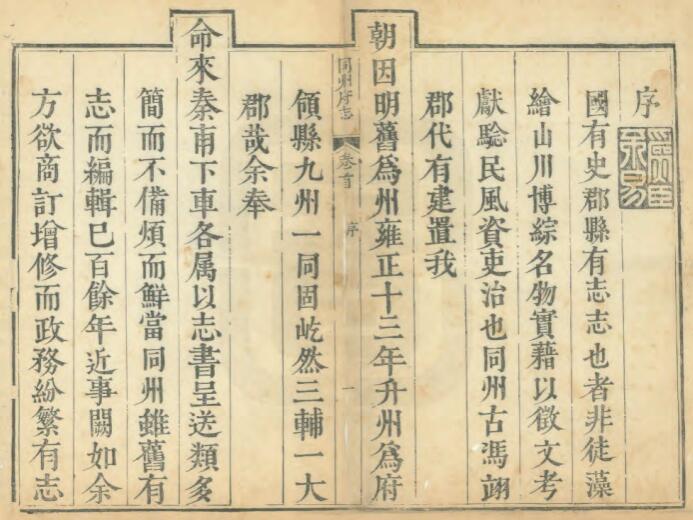 序
國有史郡縣有志志也者非徒藻
繪山川博綜名物實藉以徵文考
獻驗民風資吏治也同州古馮翊
郡代有建置我
朝因明舊爲州雍正十三年升州爲府
同州府志 卷首 序 一
領縣九州一同固屹然三輔一大
郡哉余奉
命來秦甫下車各属以志書呈送類多
簡而不備煩而鮮當同州雖舊有
志而編輯巳百餘年近事闕如余
方欲商訂增修而政務紛繁有志